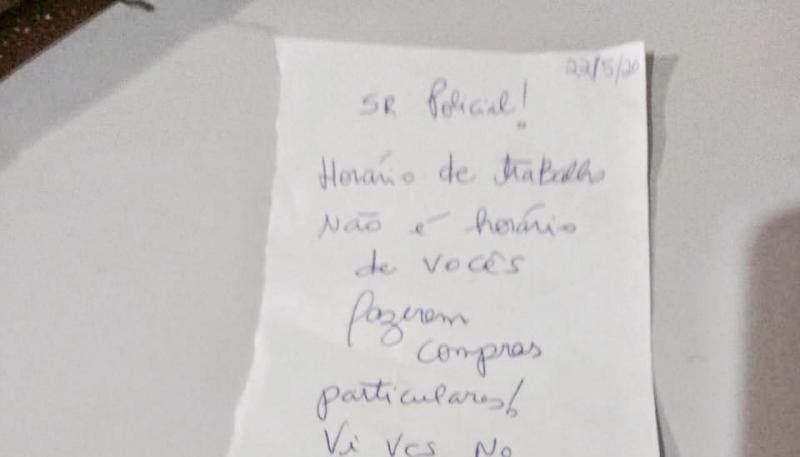 22/5/20
SR Policial!
Horário de trabalho
Não é horário
de vocês
fazerem
compras
particulares!
Vi vcs no